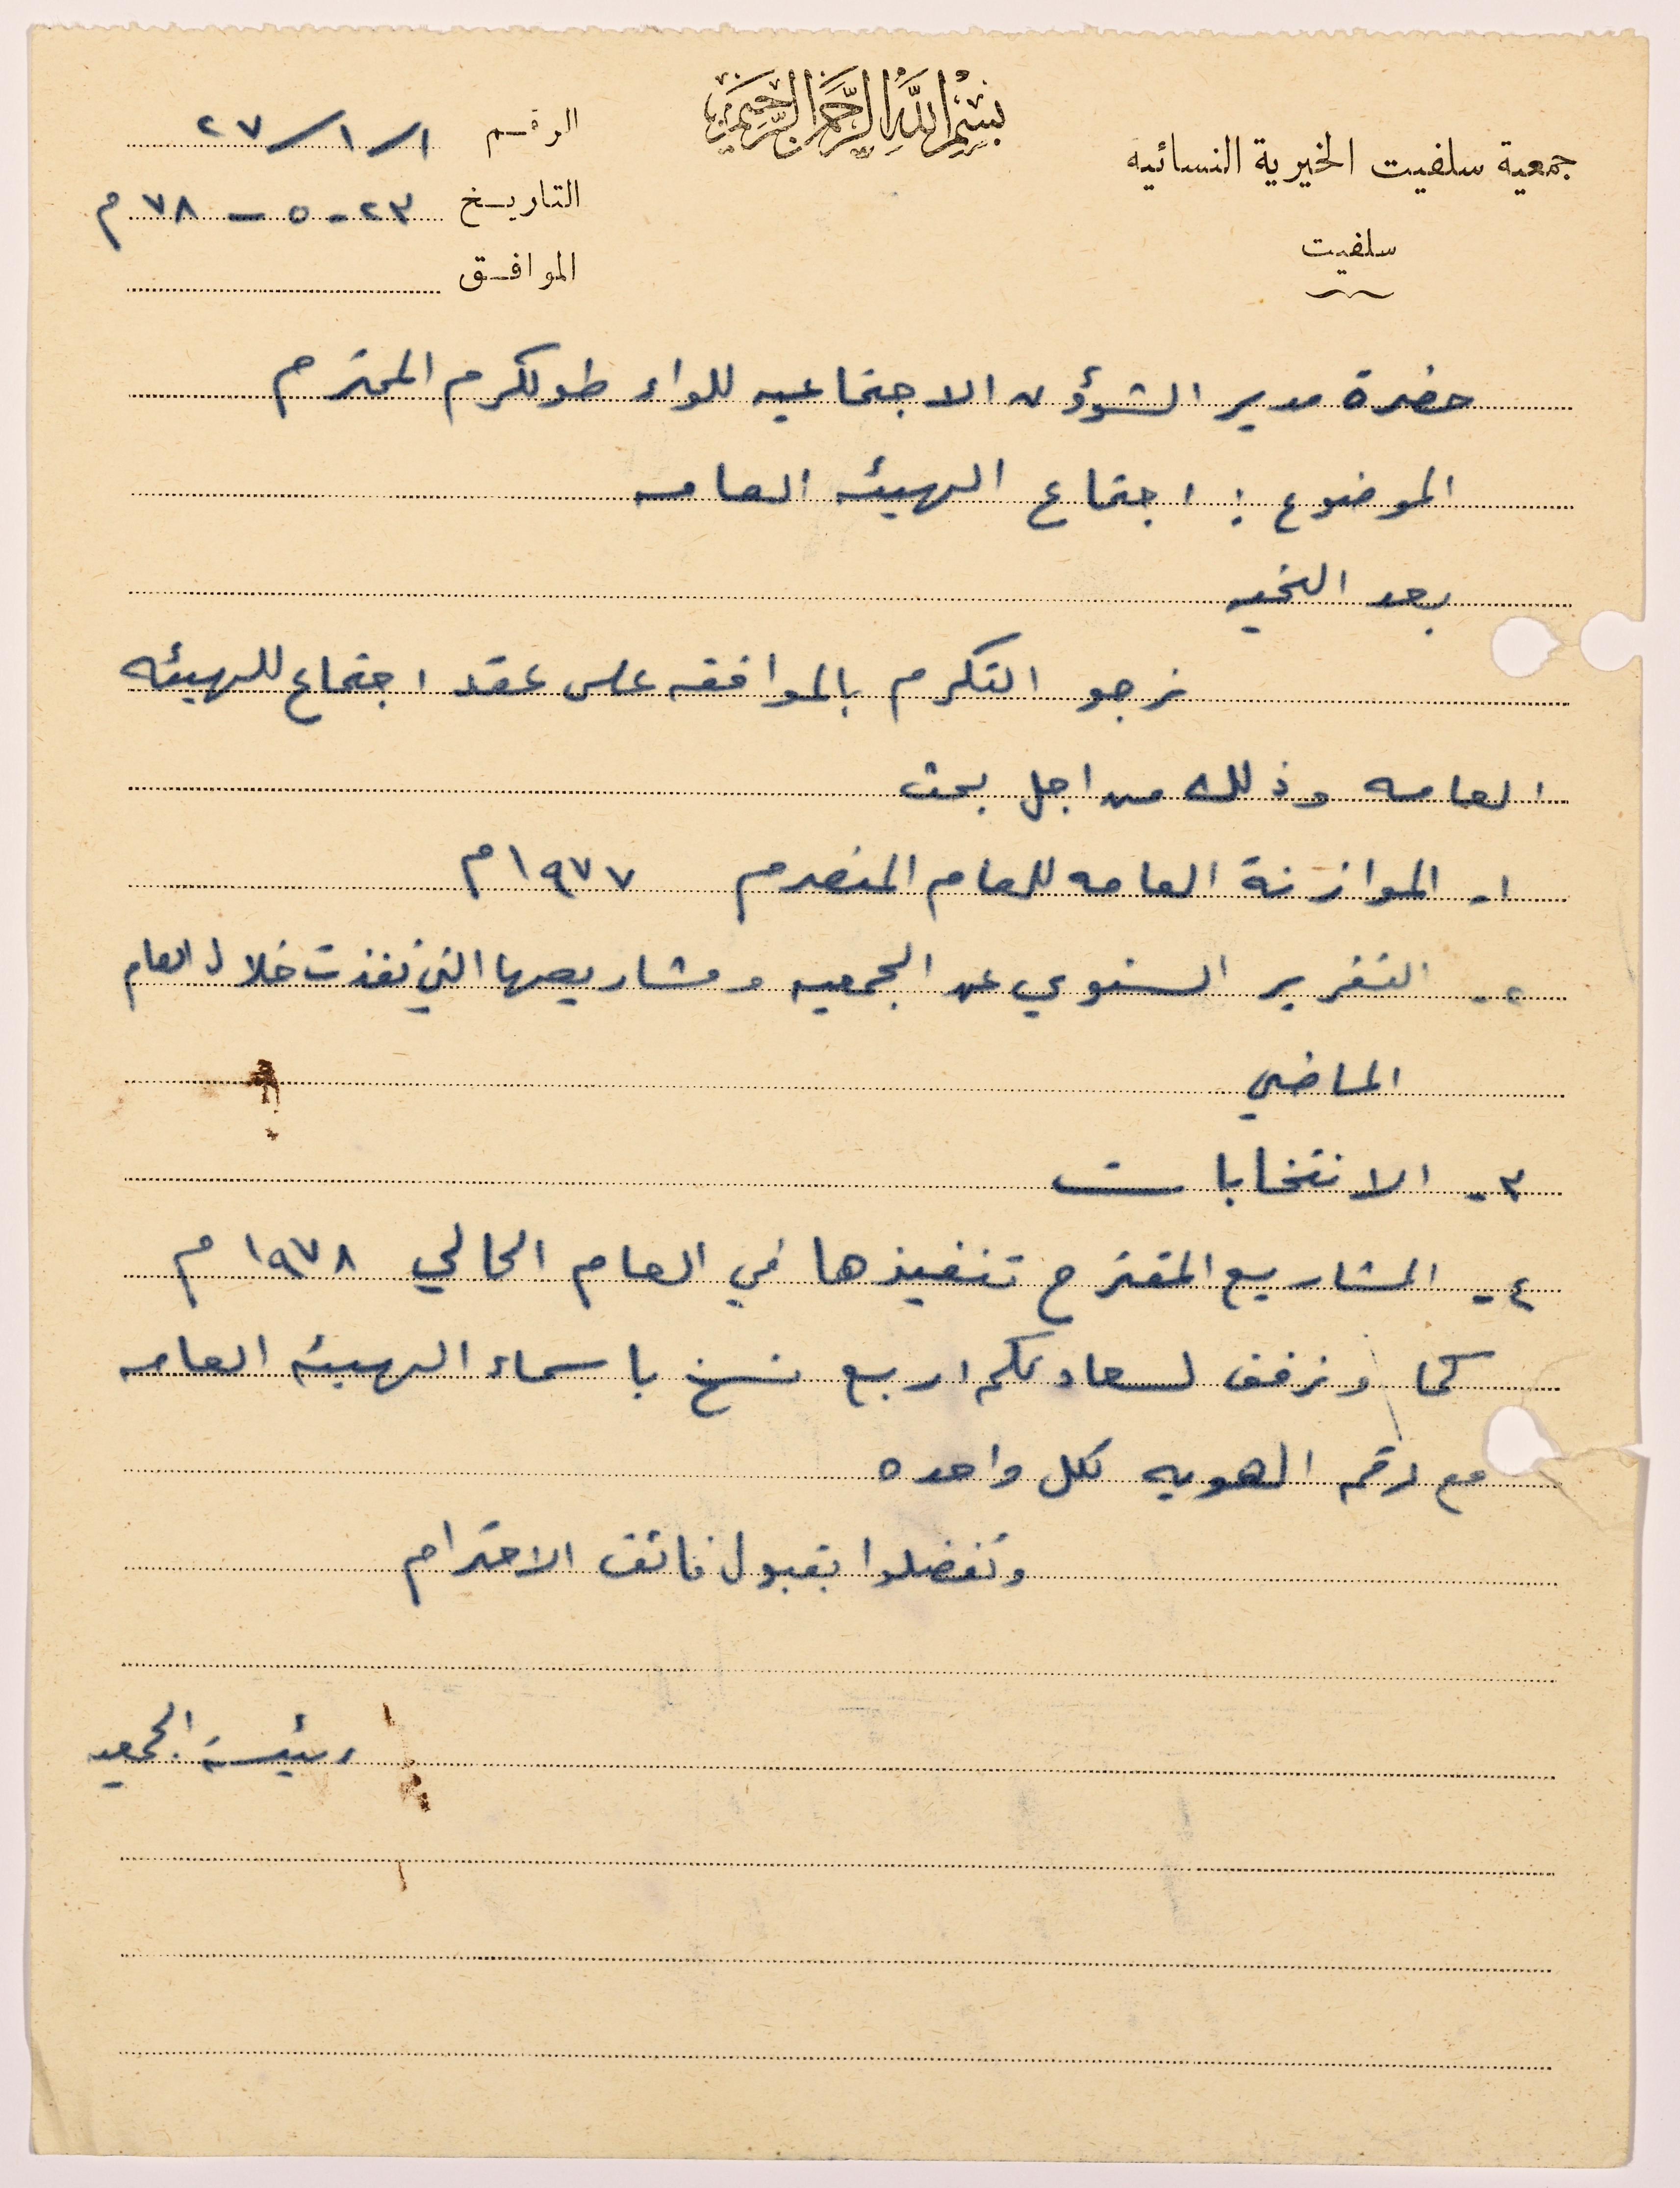 بسم الله الرحمن الرحيم
جمعية سلفيت الخيرية النسائيه
سلفيت
الرقم ١/١/٢٧
التاريخ ٢٣-٥-٧٨م
الموافق
حضرة مدير الشؤون الاجتماعيه للواء طولكرم المحترم
الموضوع : اجتماع الهيئه العامه
بعد التحيه
نرجو التكرم بالموافقه على عقد اجتماع للهيئه
العامه وذلك من اجل بحث
١- الموازنة العامه للعام المنصرم ١٩٧٧م
٢- التقرير السنوي عن الجمعيه ومشاريعها التي نفذت خلال العام
الماضي
٣- الانتخابات
٤- المشاريع المقترح تنفيذها في العام الحالي ١٩٧٨م
كما ونرفق لسعادتكم اربع نسخ باسماء الهيئة العامه
مع رقم الهويه لكل واحده
وتفضلوا بقبول فائق الاحترام
رئيسة الجمعيه